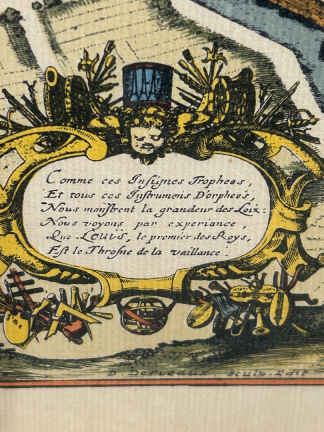 Comme ces Insignes Trophees,
Et tous ces Instrumens D'orphee's,
Nous monstrent la grandeur des Loix:
Nous voyons par experience,
Que LOUIS, le premier des Roys,
Est le Throsne de la vaillance.
Sculp. Edit